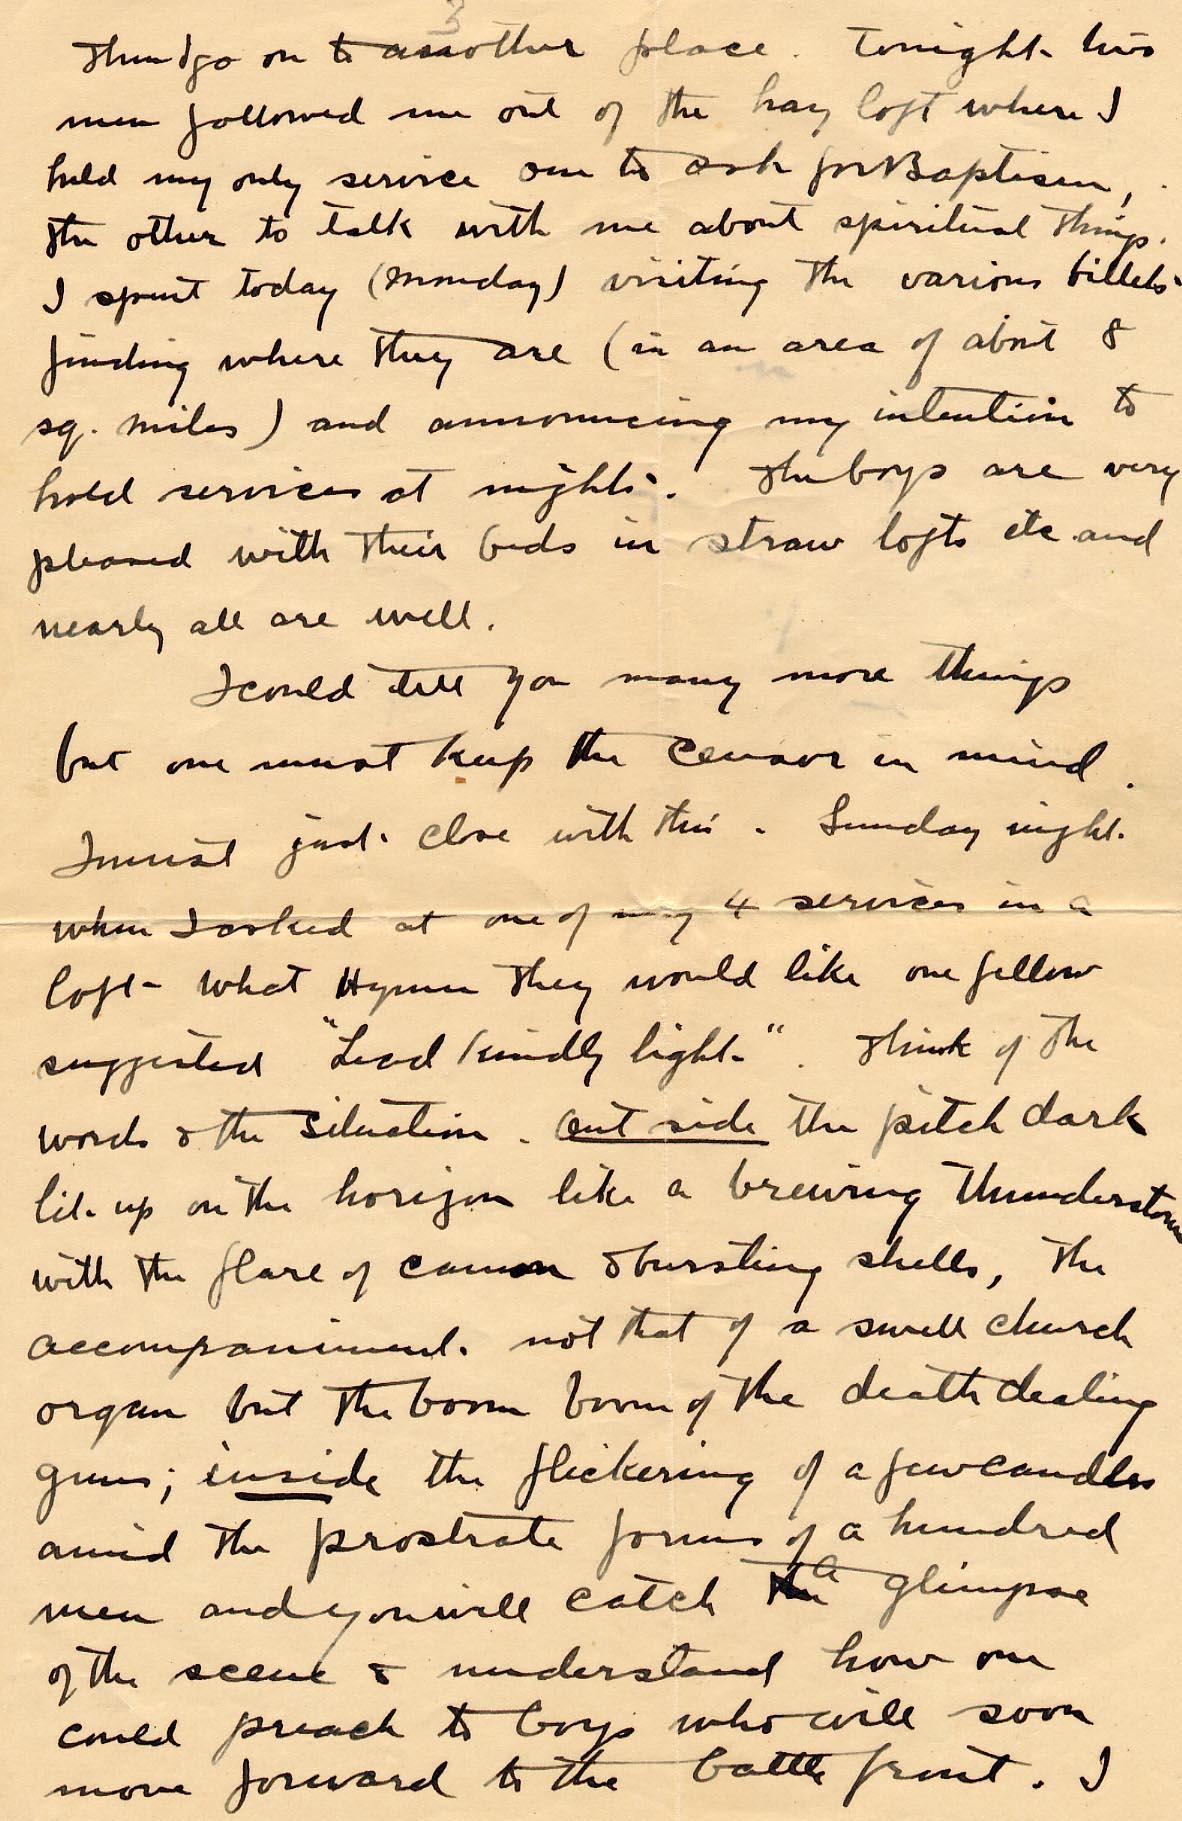 3
Then I go on to another place. Tonight two
men followed me out of the hay loft where I
held my only service one to ask for Baptism,
the other to talk with me about spiritual things.
I spent today (Monday) visiting the various billets
finding where they are (in an area of about 8
sq. miles) and announcing my intention to
hold services at nights. The boys are very
pleased with their beds in straw lofts etc and
nearly all are well.
I could tell you many more things
but one must keep the censor in mind.
I must just close with this. Sunday night
when I asked at one of my 4 services in a
loft what Hymn they would like one fellow
suggested "Lead kindly light". Think of the
words & the situation. Out side the pitch dark
lit up on the horizon like a brewing thunderstorm
with the flare of cannon & bursting shells, the
accompaniment not that of a swell church
organ but the boom boom of the death dealing
guns; inside the flickering of a few candles
amid the prostrate forms of a hundred
men and you will catch a glimpse
of the scene & understand how one
could preach to boys who will soon
move forward to the battle front. I